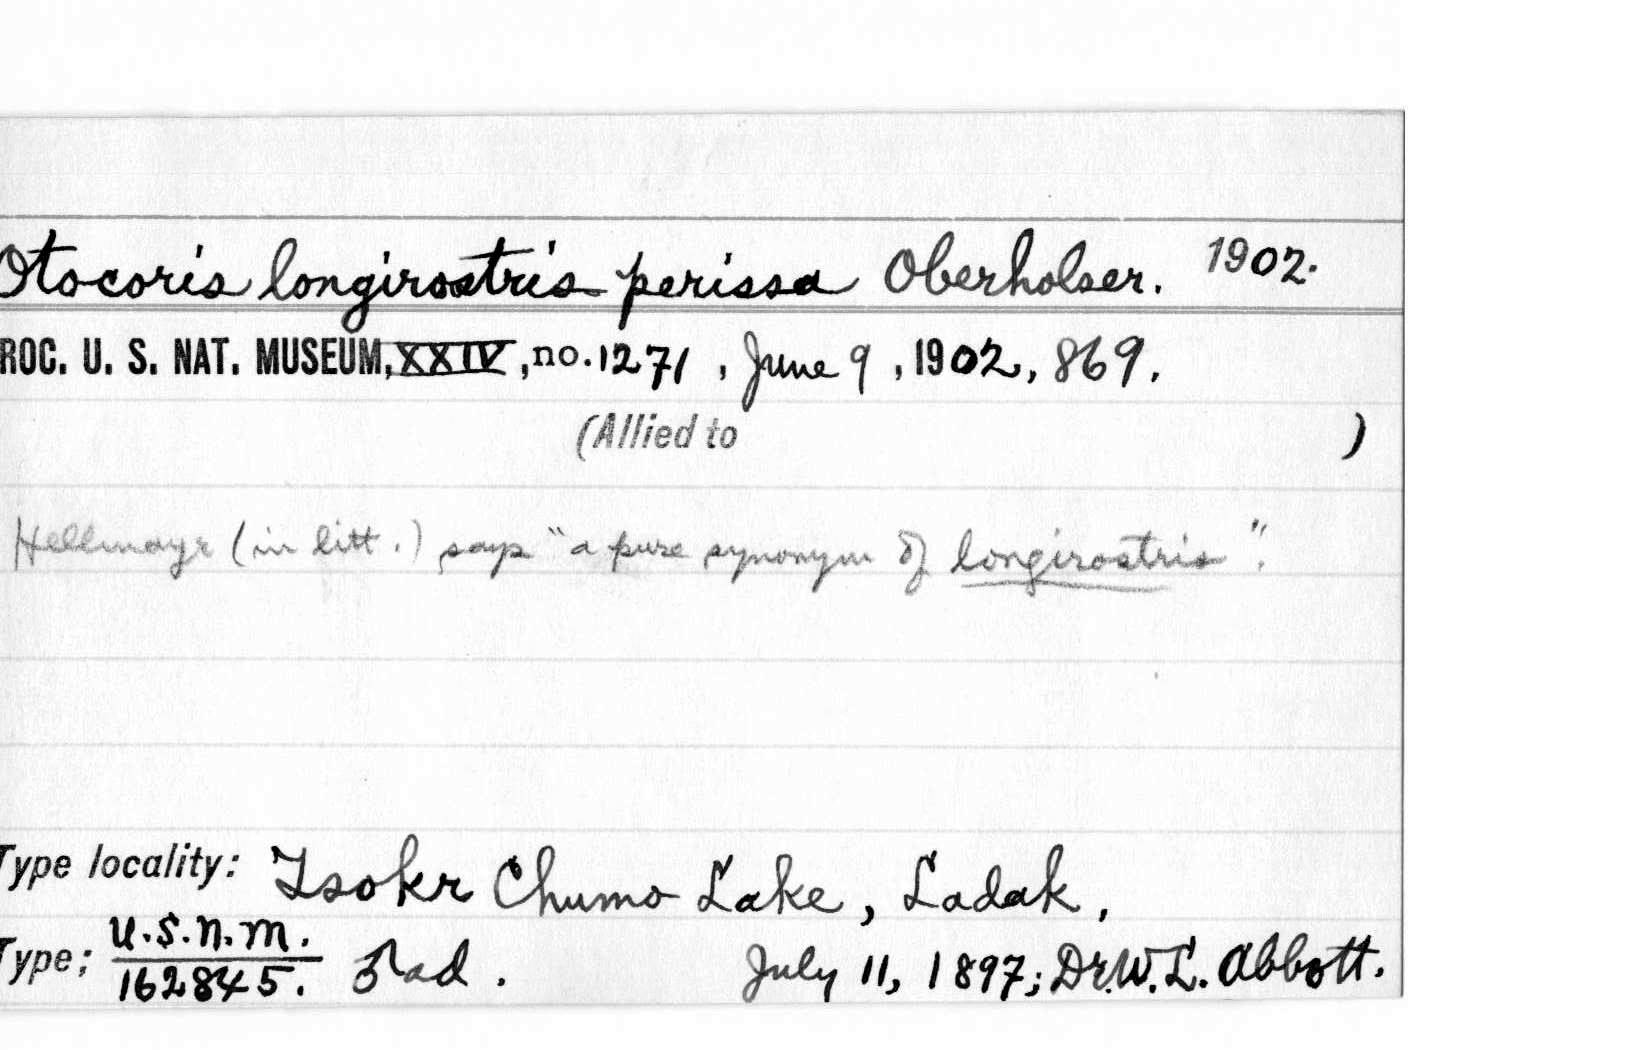 Otocoris longirostris perissa Oberholser. 1902.
ROC. U. S. NAT. MUSEUM, XXIV, no. 1271, June 9, 1902, 869.
(Allied to )
Hellmayr (in litt.) says "a pure synonym of longirostris".
Type locality: Tsokr Chumo Lake, Ladak,
Type; U.S.N.M. 162845. ♂ ad. July 11, 1897; Dr. W. L. Abbott.